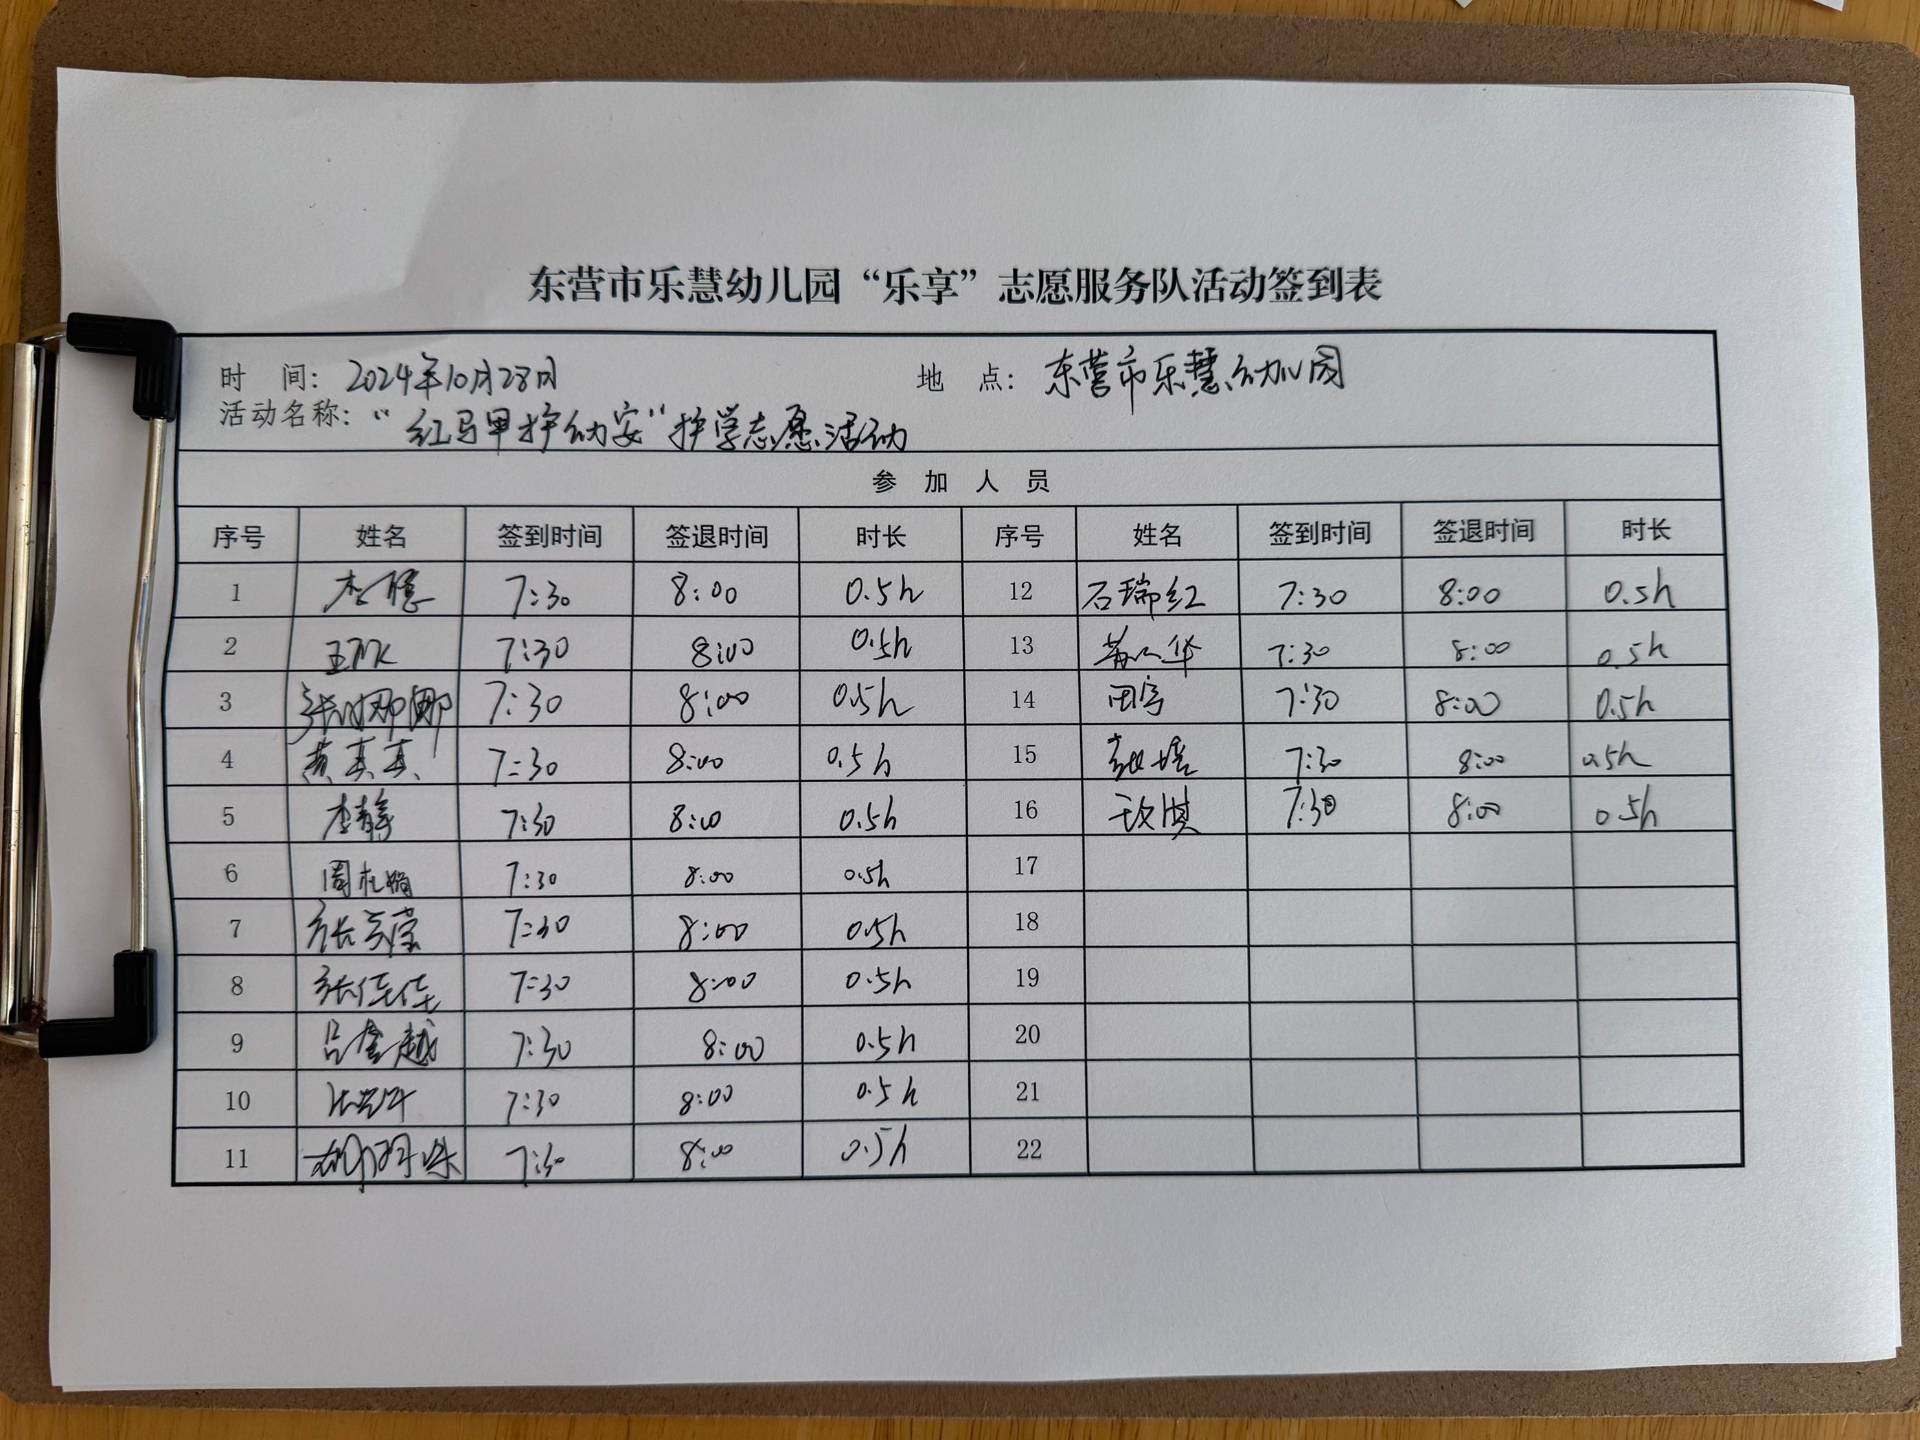 东营市乐慧幼儿园“乐享”志愿服务队活动签到表
时 间：2024年10月28日 地 点：东营市乐慧幼儿园
活动名称：“红马甲护幼安”护学志愿活动
参 加 人 员
序号 姓名 签到时间 签退时间 时长 序号 姓名 签到时间 签退时间 时长
1 李 7:30 8:00 0.5h 12 石瑞红 7:30 8:00 0.5h
2 王 7:30 8:00 0.5h 13 华 7:30 8:00 0.5h
3 张 娜 7:30 8:00 0.5h 14 田宇 7:30 8:00 0.5h
4 黄真真 7:30 8:00 0.5h 15 7:30 8:00 0.5h
5 李静 7:30 8:00 0.5h 16 淇 7:30 8:00 0.5h
6 周 娟 7:30 8:00 0.5h 17
7 张 莹 7:30 8:00 0.5h 18
8 张佳佳 7:30 8:00 0.5h 19
9 吕金越 7:30 8:00 0.5h 20
10 7:30 8:00 0.5h 21
11 7:30 8:00 0.5h 22